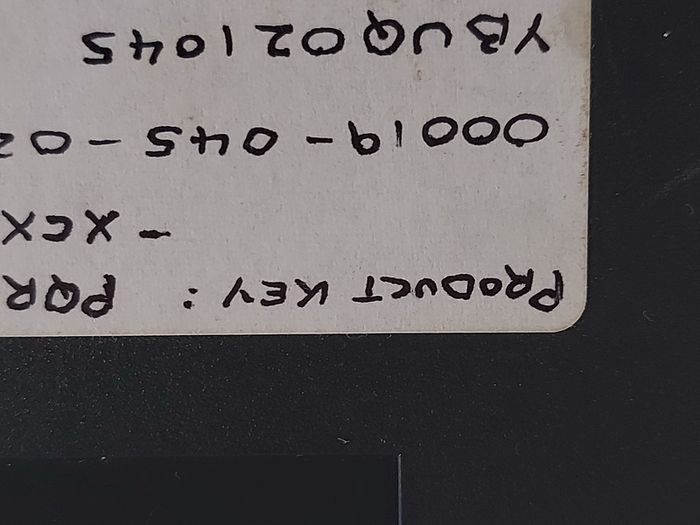 PRODUCT KEY : PQR
- XCX
00019-045-02
YBUQ021045